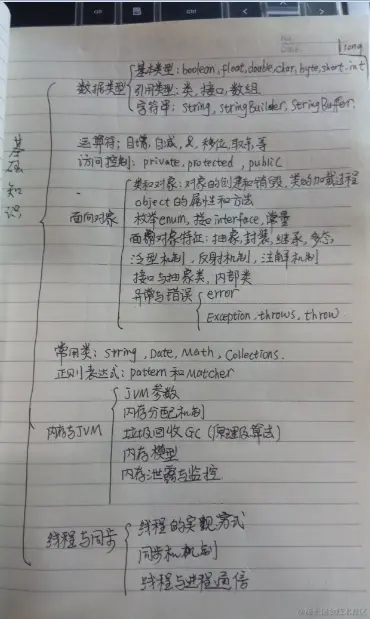 long
基本类型:boolean,float,double,char,byte,short,int
数据类型 引用类型:类,接口,数组
字符串:String,StringBuilder,StringBuffer,
运算符;自增,自减,&,移位,取余,等
访问控制:private,protected,public
基础知识
类和对象:对象的创建和销毁,类的加载过程
object的属性和方法
面向对象 枚举enum,接口interface,常量
面向对象特征:抽象,封装,继承,多态,
泛型机制,反射机制,注解机制
接口与抽象类,内部类
异常与错误 error
Exception,throws,throw
常用类:String,Date,Math,Collections.
正则表达式:pattern和Matcher
JVM参数
内存分配机制
内存与JVM 垃圾回收GC(原理及算法)
内存模型
内存泄露与监控
线程与同步 线程的实现方式
同步和机制
线程与进程通信